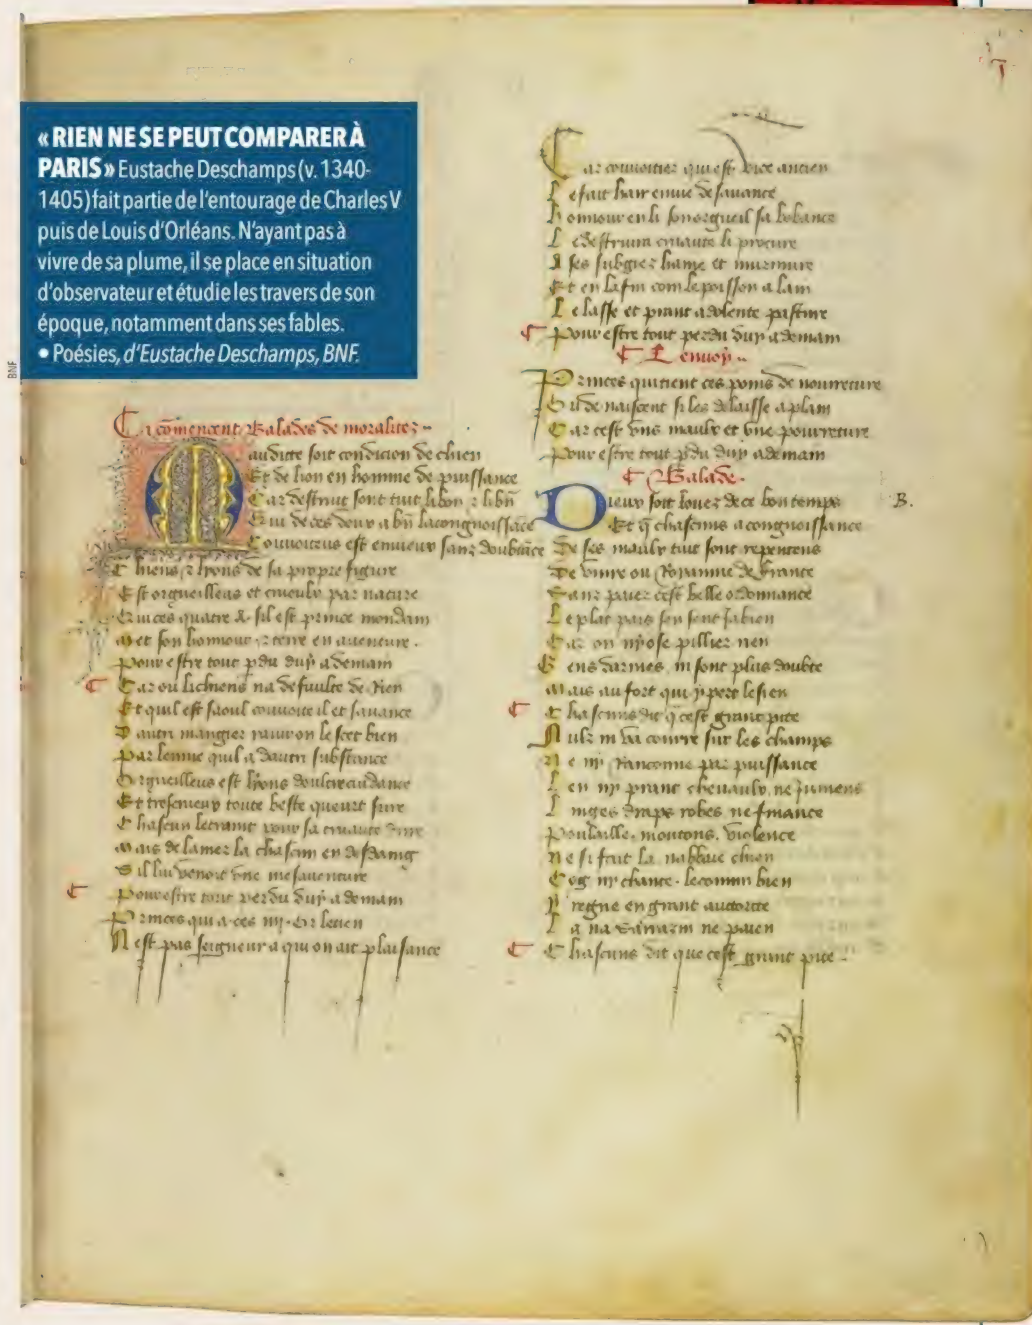 « RIEN NE SE PEUT COMPARER À
PARIS » Eustache Deschamps (v. 1340-
1405) fait partie de l'entourage de Charles V
puis de Louis d'Orléans. N'ayant pas à
vivre de sa plume, il se place en situation
d'observateur et étudie les travers de son
époque, notamment dans ses fables.
• Poésies, d'Eustache Deschamps, BNF.
BNF
Ci cōmencent Balades de moralitez
Maudicte soit condicion de chien
Et de lion en homme de puissance
Car destruit sont tuit li bon
Qui de ces deux a
Couvoiteus est envieux sanz doubtance
Chiens lyons de sa propre figure
Est orgueilleus et par nature
quatre sil est prince mondain
Met son honnour terre en aventure
Pour estre tout pdu duy a demain
Car ou li chiens na deffaulte de rien
Et quil est saoul couvoite il et savance
Dautri mangier on le scet bien
Par lenvie quil a dautri substance
Orgueilleus est lyons doultrecuidance
Et toute beste queurt sure
Chascun le craint pour sa cruauté dure
Mais de lamer la chascun en desdaing
Sil lui venoit une mesaventure
Pour estre tout perdu duy a demain
Princes qui a ces
Nest pas seigneur a qui on ait plaisance
Car couvoitier qui est vice ancien
Le fait hair envie desavance
Honnour en li son orgueil sa bobance
Le destruira cruauté li procure
A ses subgiez haine et murmure
Et en la fin com le poisson a lain
Le lasse et prant a dolente pasture
Pour estre tout perdu duy a demain
Lenvoy
Princes qui tient ces poins de nourreture
Sil de naiscent si les delaisse a plain
Car cest uns maulx et une pourreture
Pour estre tout pdu duy a demain
Balade
Dieux soit louez de ce bon temps
B.
Et q̄ chascuns a congnoissance
De ses maulx tuit sont repentens
De vivre ou Royaume de France
Sanz paier cest belle ordonnance
Le plat pais sen sent ja bien
Car on nyose pillier rien
Gens darmes ny sont plus doubte
Mais au fort qui y pert le sien
Chascuns dit q̄ cest grant pite
Nulz ny va courre sur les champs
Ne ny ranconne par puissance
Len ny prant chevaulx ne jumens
Linges draps robes ne finance
Poulaille moutons violence
Ne si fait la nabbaie chien
Coq ny chante le commun bien
Y regne en grant auctorite
La na Sarrazin ne paien
Chascuns dit que cest grant pite